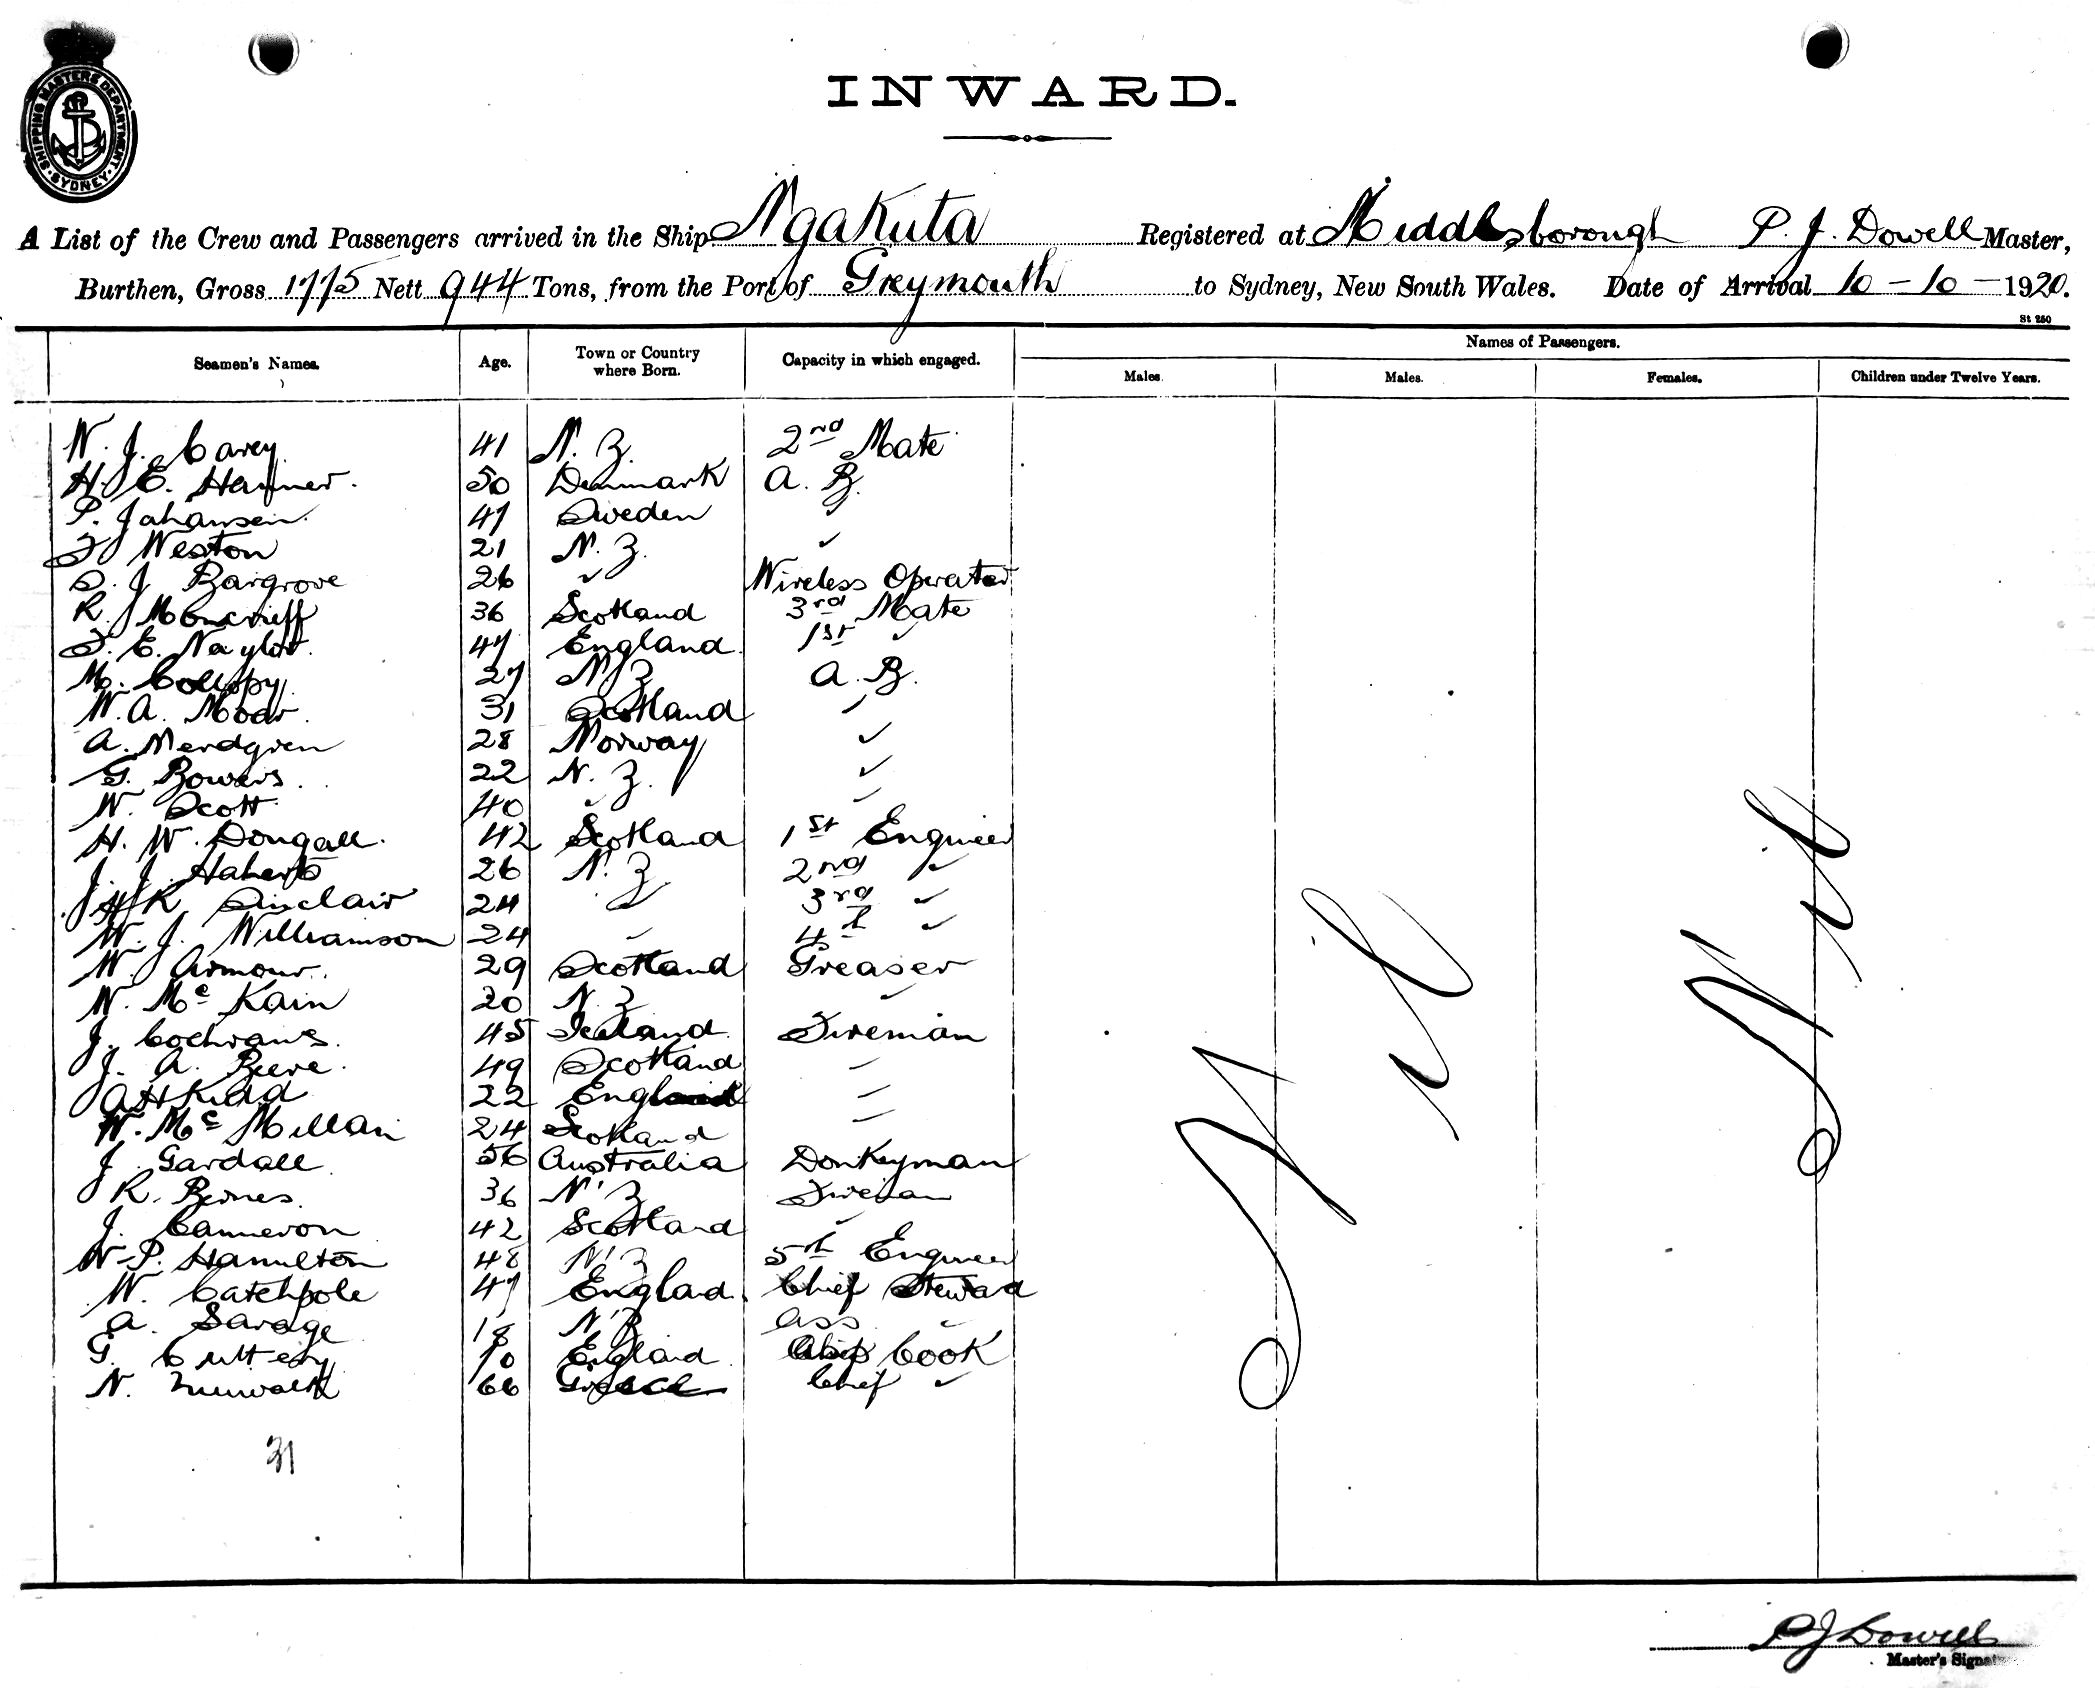 SHIPPING MASTERS DEPARTMENT SYDNEY
INWARD.
A List of the Crew and Passengers arrived in the Ship Ngakuta Registered at Middlesborough P. J. Dowell Master,
Burthen, Gross 1775 Nett 944 Tons, from the Port of Greymouth to Sydney, New South Wales. Date of Arrival 10-10-1920.
St 250
Seamen's Names. Age. Town or Country where Born. Capacity in which engaged. Names of Passengers.
Males. Males. Females. Children under Twelve Years.
W. J. Carey 41 N. Z. 2nd Mate
H. E. Hanner. 50 Denmark A. B.
P. Johansen. 47 Sweden ✓
F Weston 21 N. Z. ✓
S. J Bargrove 26 ✓ Wireless Operator
R. Moncrieff 36 Scotland 3rd Mate
F. E. Naylor. 47 England 1st ✓
M. Collopy 27 N Z A. B.
W. A. Moar. 31 Scotland ✓
A. Nerdgren 28 Norway ✓
G. Bowers. 22 N. Z. ✓
W. Scott 40 ✓ ✓
H. W. Dougall. 42 Scotland 1st Engineer
J. J. 26 N. Z 2nd ✓
H R Sinclair 24 ✓ 3rd ✓
W. J. Williamson 24 ✓ 4th ✓
W. Armour. 29 Scotland Greaser
N. Mc Kain 20 N. Z ✓
J. Cochrans. 45 Iceland Fireman
J. A. Beere. 49 Scotland ✓
A H Kidd 22 England ✓
W. Mc Millan 24 Scotland ✓
J. Gardall 56 Australia Donkeyman
R. Bernes. 36 N. Z Fireman
J. Cameron 42 Scotland ✓
W. P. Hamilton 48 N. Z 5th Engineer
W. Catchpole 47 England. Chief Steward
A. Savage 18 N. Z Ass ✓
G. Cuttery 70 England Cook
N. 66 Greece Chief ✓
Nil Nil
31
P J Dowell
Master's Signat